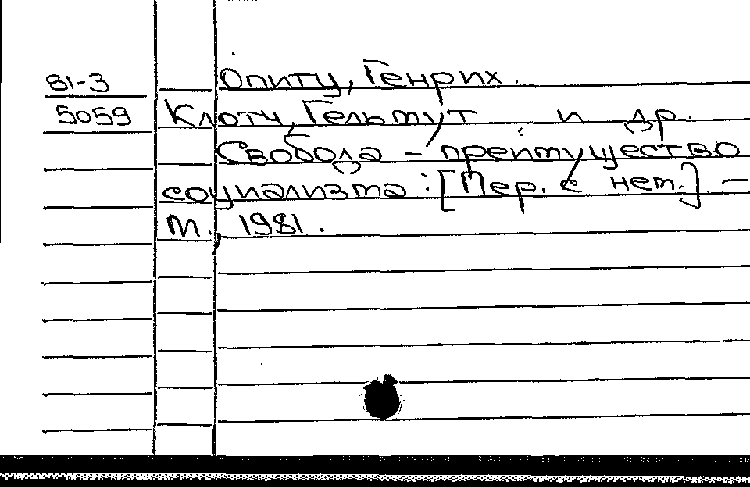 81-3 Опитц, Генрих.
5059 Клотц, Гельмут и др.
Свобода - преимущество
социализма: [Пер. с нем.] -
М., 1981.